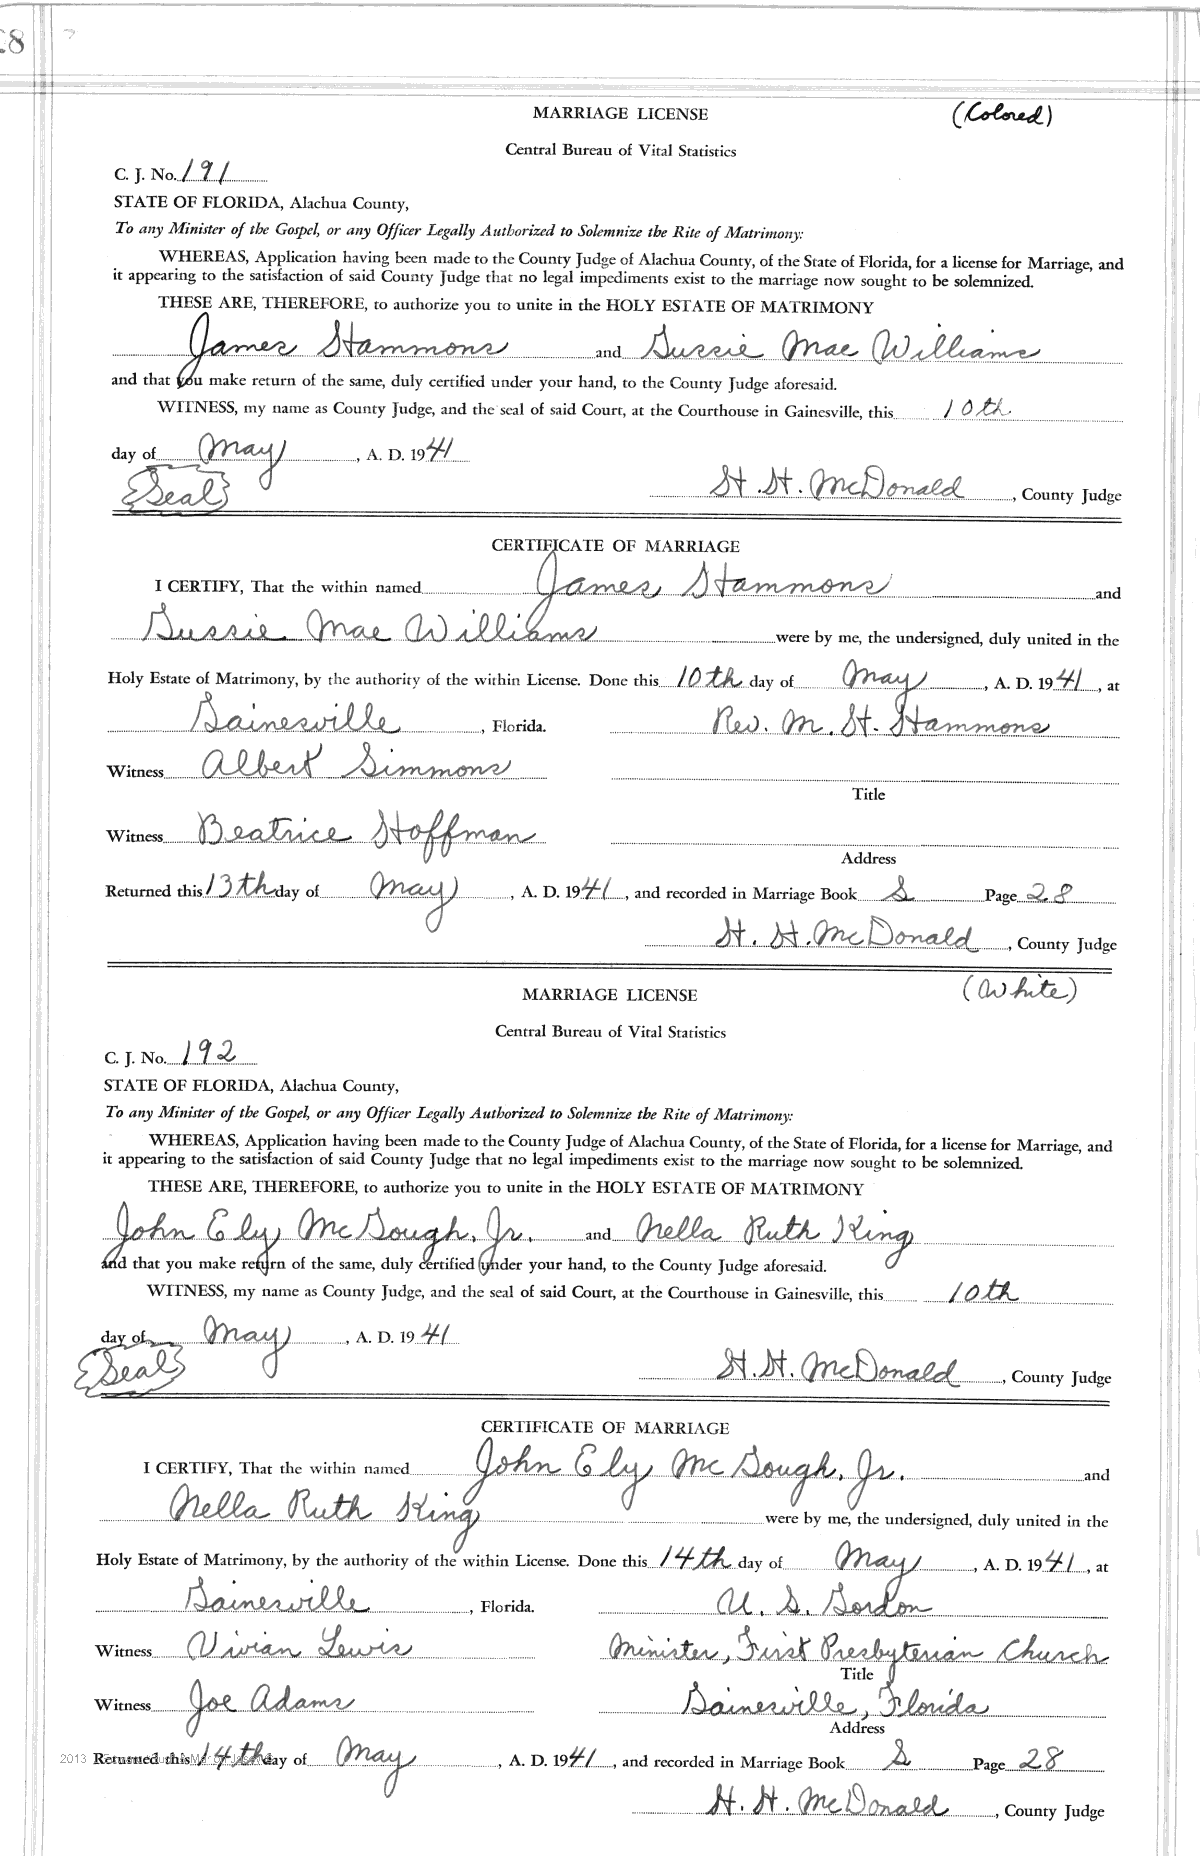 28
MARRIAGE LICENSE (Colored)
Central Bureau of Vital Statistics
C. J. No. 191
STATE OF FLORIDA, Alachua County,
To any Minister of the Gospel, or any Officer Legally Authorized to Solemnize the Rite of Matrimony:
WHEREAS, Application having been made to the County Judge of Alachua County, of the State of Florida, for a license for Marriage, and
it appearing to the satisfaction of said County Judge that no legal impediments exist to the marriage now sought to be solemnized.
THESE ARE, THEREFORE, to authorize you to unite in the HOLY ESTATE OF MATRIMONY
James Hammons and Gussie Mae Williams
and that you make return of the same, duly certified under your hand, to the County Judge aforesaid.
WITNESS, my name as County Judge, and the seal of said Court, at the Courthouse in Gainesville, this 10th
day of May, A. D. 1941
{Seal} H. H. McDonald, County Judge
CERTIFICATE OF MARRIAGE
I CERTIFY, That the within named James Hammons and
Gussie Mae Williams were by me, the undersigned, duly united in the
Holy Estate of Matrimony, by the authority of the within License. Done this 10th day of May, A. D. 1941, at
Gainesville, Florida. Rev. M. H. Hammons
Witness Albert Simmons
Title
Witness Beatrice Hoffman
Address
Returned this 13th day of May, A. D. 1941, and recorded in Marriage Book S Page 28
H. H. McDonald, County Judge
MARRIAGE LICENSE (White)
Central Bureau of Vital Statistics
C. J. No. 192
STATE OF FLORIDA, Alachua County,
To any Minister of the Gospel, or any Officer Legally Authorized to Solemnize the Rite of Matrimony:
WHEREAS, Application having been made to the County Judge of Alachua County, of the State of Florida, for a license for Marriage, and
it appearing to the satisfaction of said County Judge that no legal impediments exist to the marriage now sought to be solemnized.
THESE ARE, THEREFORE, to authorize you to unite in the HOLY ESTATE OF MATRIMONY
John Ely McGough, Jr. and Nella Ruth King
and that you make return of the same, duly certified under your hand, to the County Judge aforesaid.
WITNESS, my name as County Judge, and the seal of said Court, at the Courthouse in Gainesville, this 10th
day of May, A. D. 1941
{Seal} H. H. McDonald, County Judge
CERTIFICATE OF MARRIAGE
I CERTIFY, That the within named John Ely McGough, Jr. and
Nella Ruth King were by me, the undersigned, duly united in the
Holy Estate of Matrimony, by the authority of the within License. Done this 14th day of May, A. D. 1941, at
Gainesville, Florida. U. S. Gordon
Witness Vivian Lewis Minister, First Presbyterian Church
Title
Witness Joe Adams Gainesville, Florida
Address
2013
Returned this 14th day of May, A. D. 1941, and recorded in Marriage Book S Page 28
H. H. McDonald, County Judge